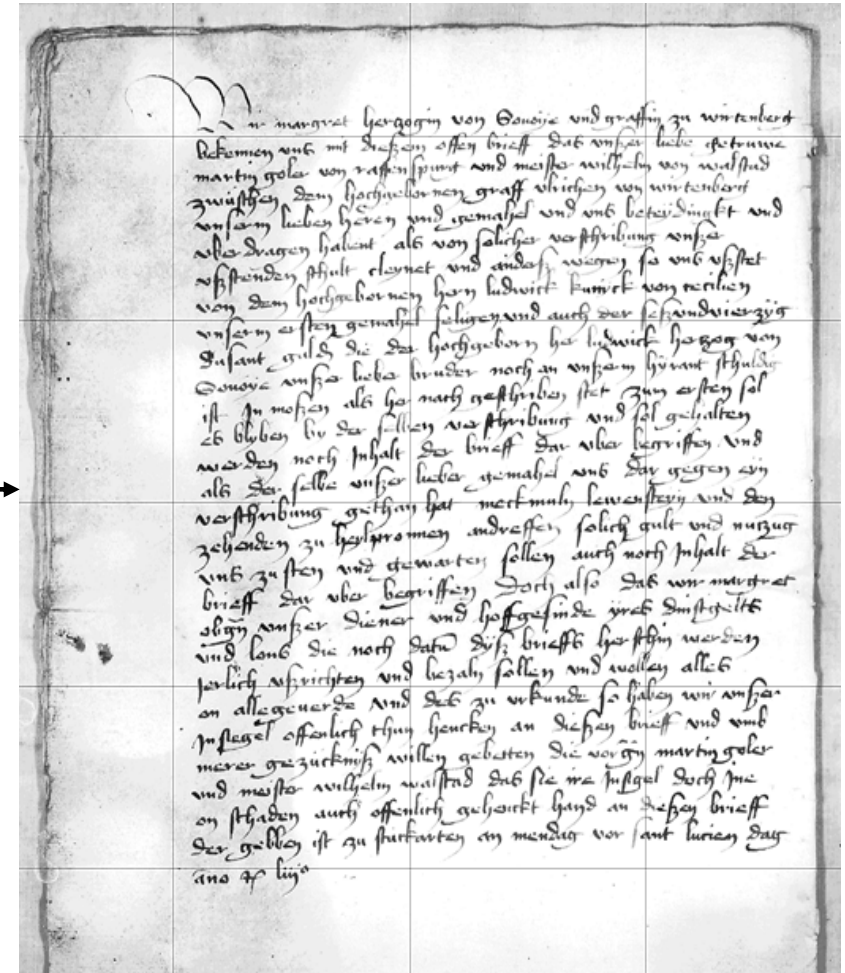 Wir margret hertzogin von Sovoye vnd graffin zu wirtenberg
bekennen vns mit dieszem offen brieff das vnszer liebe getruwe
martin goler von raffenspurg vnd meister wilhelm von walstad
zwuschen dem hochgebornen graff vlrichen von wirtenberg
vnserm lieben heren vnd gemahel vnd vns beteydingkt vnd
vber dragen habent als von solicher verschribung vnszer
vszstenden schult cleynet vnd anders wegen so vns vszstet
von dem hochgebornen hern ludwick kunick von cecilien
vnserm ersten gemahel seligen vnd auch der seszvndvierzyg
dusant guld die der hochgeborn her ludwick herzog von
Sovoye vnszer lieber bruder noch an vnszerm hyrant schuldig
ist In moszen als her nach geschriben stet zum ersten sol
es blyben by der selben verschribung vnd sol gehalten
werden noch Inhalt der brieff dar vber begriffen vnd
als der selbe vnszer lieber gemahel vns dar gegen eyn
verschribung gethan hat meckmuln lewensteyn vnd den
zehenden zu heylpronnen andreffen solich gult vnd nutzug
vns zu sten vnd gewarten sollen auch noch Inhalt der
brieff dar vber begriffen Doch also das wir margret
obgn vnszer diener vnd hoffgesinde yres dinstgelts
vnd lons die noch datu dysz brieffs herschin werden
Jerlich vszrichten vnd bezaln sollen vnd wollen alles
on allegeuerde vnd des zu vrkunde so haben wir vnszer
Insiegel offenlich thun hencken an dieszen brieff vnd vmb
merer gezuckniß willen gebetten die vorgn martin goler
vnd meister wilhelm walstad das sie ire Insigel doch Jne
on schaden auch offenlich gehenckt hand an dieszen brieff
der gebben ist zu stuckarten an mendag vor sant lucien dag
ano liiij°